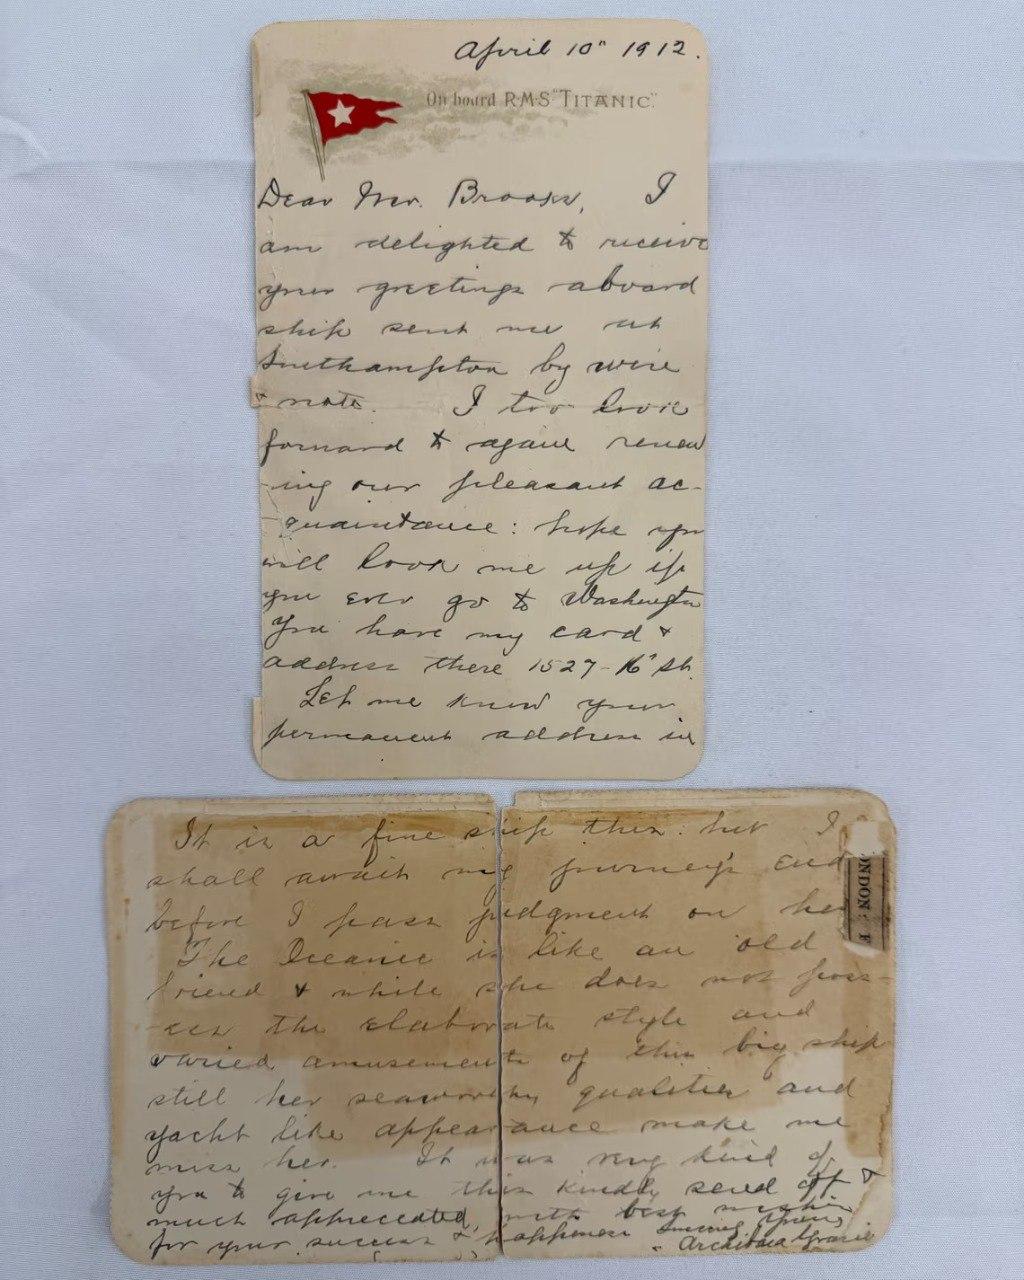 April 10" 1912.
On board R.M.S "TITANIC".
Dear Mr. Brooks, I
am delighted to receive
your greetings aboard
ship sent me at
Southampton by wire
& note. I too look
forward to again renew
-ing our pleasant ac-
-quaintance: hope you
will look me up if
you ever go to Washington
You have my card &
address there 1527-16" St.
Let me know your
permanent address in
It is a fine ship this: but I
shall await my journey's end
before I pass judgment on her
The Oceanic is like an old
friend & while she does not poss-
-ess the elaborate style and
varied amusements of this big ship
still her seaworthy qualities and
yacht like appearance make me
miss her. It was very kind of
you to give me this kindly send off &
much appreciated, with best wishes
for your success & happiness Sincerely Yours
Archibald Gracie
ONDON: F